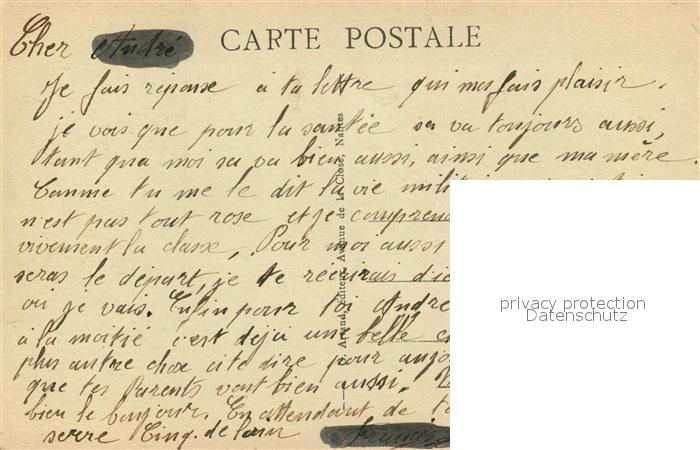 Cher André
CARTE POSTALE
Je fais réponse à ta lettre qui me fais plaisir.
je vois que pour la santée sa va toujours aussi,
tant qua moi sa va bien aussi, ainsi que ma mère.
Comme tu me le dit la vie
n'est pas tout rose et je comprend
vivement la classe, Pour moi aussi
seras le départ, je te récirais d'ic
où je vais. Enfin pour toi André
à la moitié c'est déja une belle
plus autre chose a te dire pour aujo
que tes Parents vont bien aussi.
bien le bonjour. En attendant de
serre Cinq. de loin
Artaud, Editeur, Avenue de la Close, Nantes
privacy protection
Datenschutz